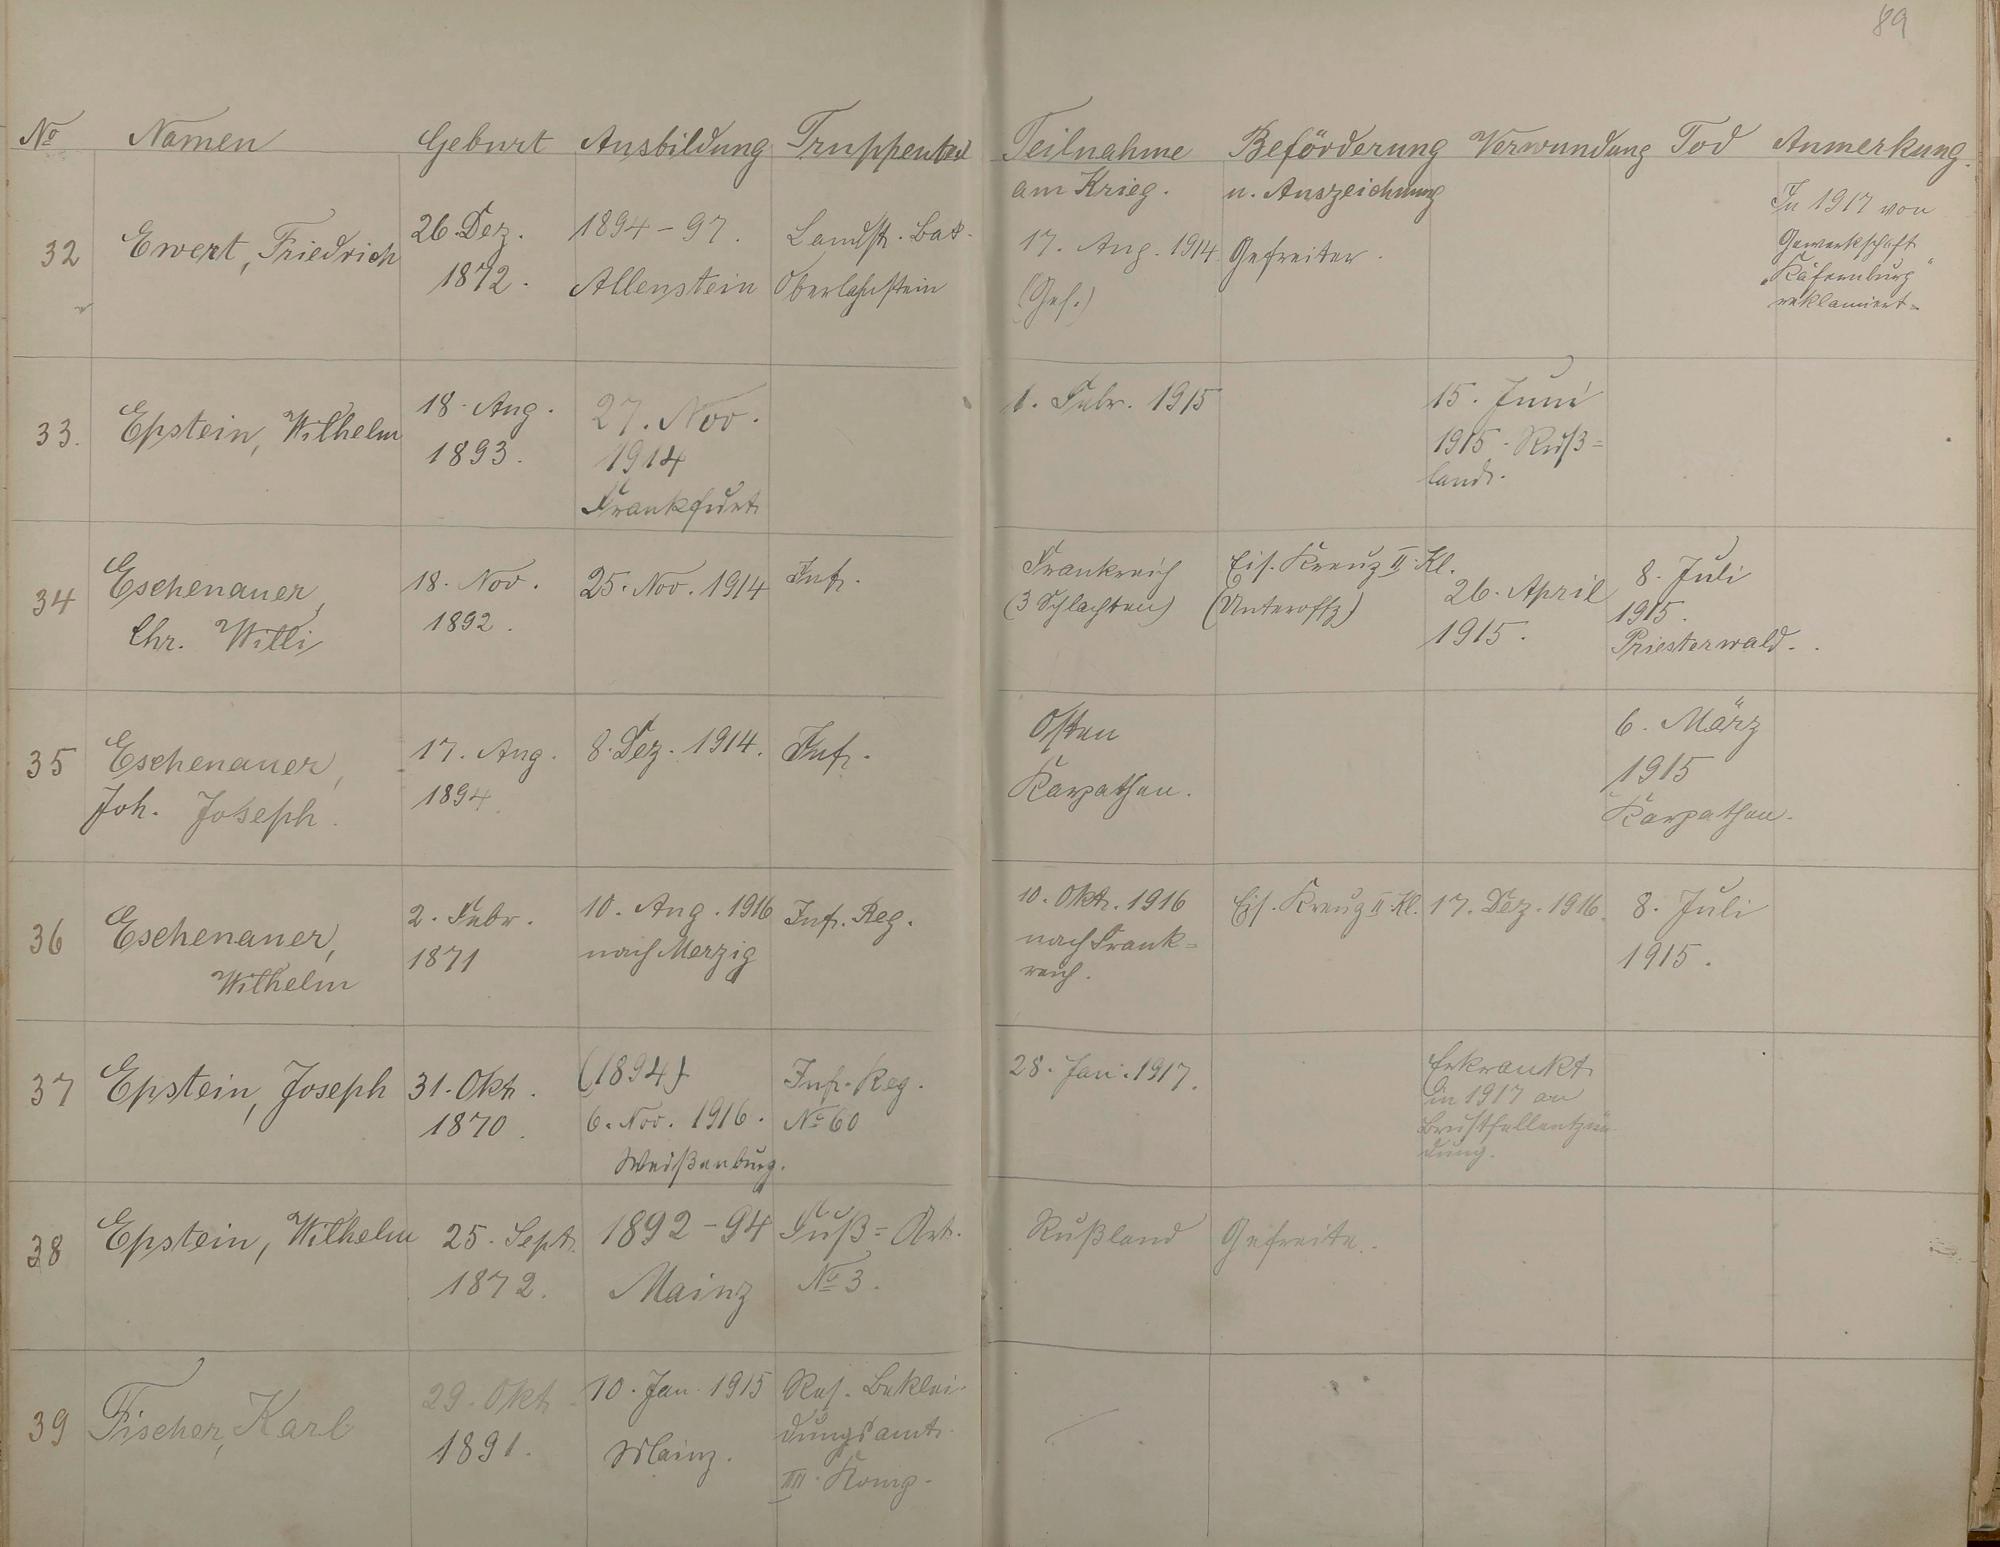 89
No Namen Geburt Ausbildung Truppenteil Teilnahme am Krieg. Beförderung u. Auszeichnung Verwundung Tod Anmerkung.
32 Ewert, Friedrich
26. Dez.
1872.
1894 - 97.
Allenstein
Landst. Bat.
Oberlahnstein
17. Aug. 1914
(Gef.)
Gefreiter.
In 1917 von
Gewerkschaft
"Käfernburg"
reklamiert.
33. Epstein, Wilhelm
18. Aug.
1893.
27. Nov.
1914
Frankfurt
1. Febr. 1915
15. Juni
1915. Ruß=
land.
34 Eschenauer,
Chr. Willi
18. Nov.
1892.
25. Nov. 1914
Inf.
Frankreich
(3 Schlachten)
Eis. Kreuz II. Kl.
(Unteroffz)
26. April
1915.
8. Juli
1915.
Priesterwald.
35 Eschenauer,
Joh. Joseph.
17. Aug.
1894.
8. Dez. 1914.
Inf.
Osten
Karpathen.
6. März
1915
Karpathen.
36 Eschenauer,
Wilhelm
2. Febr.
1871
10. Aug. 1916
nach Merzig
Inf. Reg.
10. Okt. 1916
nach Frank=
reich.
Eis. Kreuz II. Kl.
17. Dez. 1916.
8. Juli
1915.
37 Epstein, Joseph
31. Okt.
1870.
(1894)
6. Nov. 1916.
Weißenburg.
Inf. Reg.
No 60
28. Jan. 1917.
Erkrankt
in 1917 an
Brustfellentzün
dung.
38 Epstein, Wilhelm
25. Sept.
1872.
1892 - 94
Mainz
Fuß= Art.
No 3.
Rußland
Gefreite.
39 Fischer, Karl
29. Okt.
1891.
10. Jan. 1915
Mainz.
Res. Beklei-
dungsamt.
III. Komp.